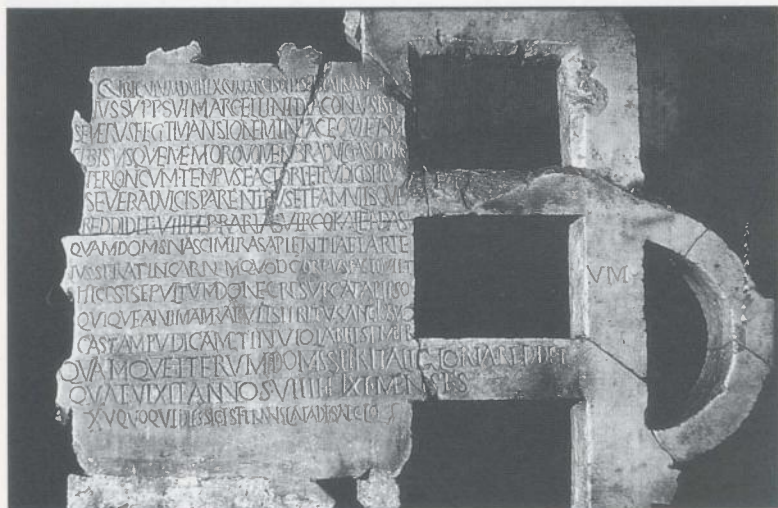 CVBICVLVM DVPLEX CVM ARCISOLIIS ET LVMINARE
IVSSV PP SVI MARCELLINI DIACONVS ISTE
SEVERVS FECIT MANSIONEM IN PACE QVIETAM
SIBI SVISQVE MEMOR QVO MEMBRA DVLCIA SOMNO
PER LONGVM TEMPVS FACTORI ET IVDICI SERVET
SEVERA DVLCIS PARENTIBVS ET FAMVLISQVE
REDDIDIT VIIII FEBRARIAS VIRGO KALENDAS
QVAM DOMS NASCI MIRA SAPIENTIA ET ARTE
IVSSERAT IN CARNEM QVOD CORPVS PACE QVIETVM
HIC EST SEPVLTVM DONEC RESVRGAT AB IPSO
QVIQVE ANIMAM RAPVIT SPIRITV SANCTO SVO
CASTAM PVDICAM ET INVIOLABILE SEMPER
QVAMQVE ITERVM DOMS SPIRITALI GLORIA REDDET
QVAE VIXIT ANNOS VIIII ET XI MENSES
XV QVOQVE DIES SIC EST TRANSLATA DE SAECLO